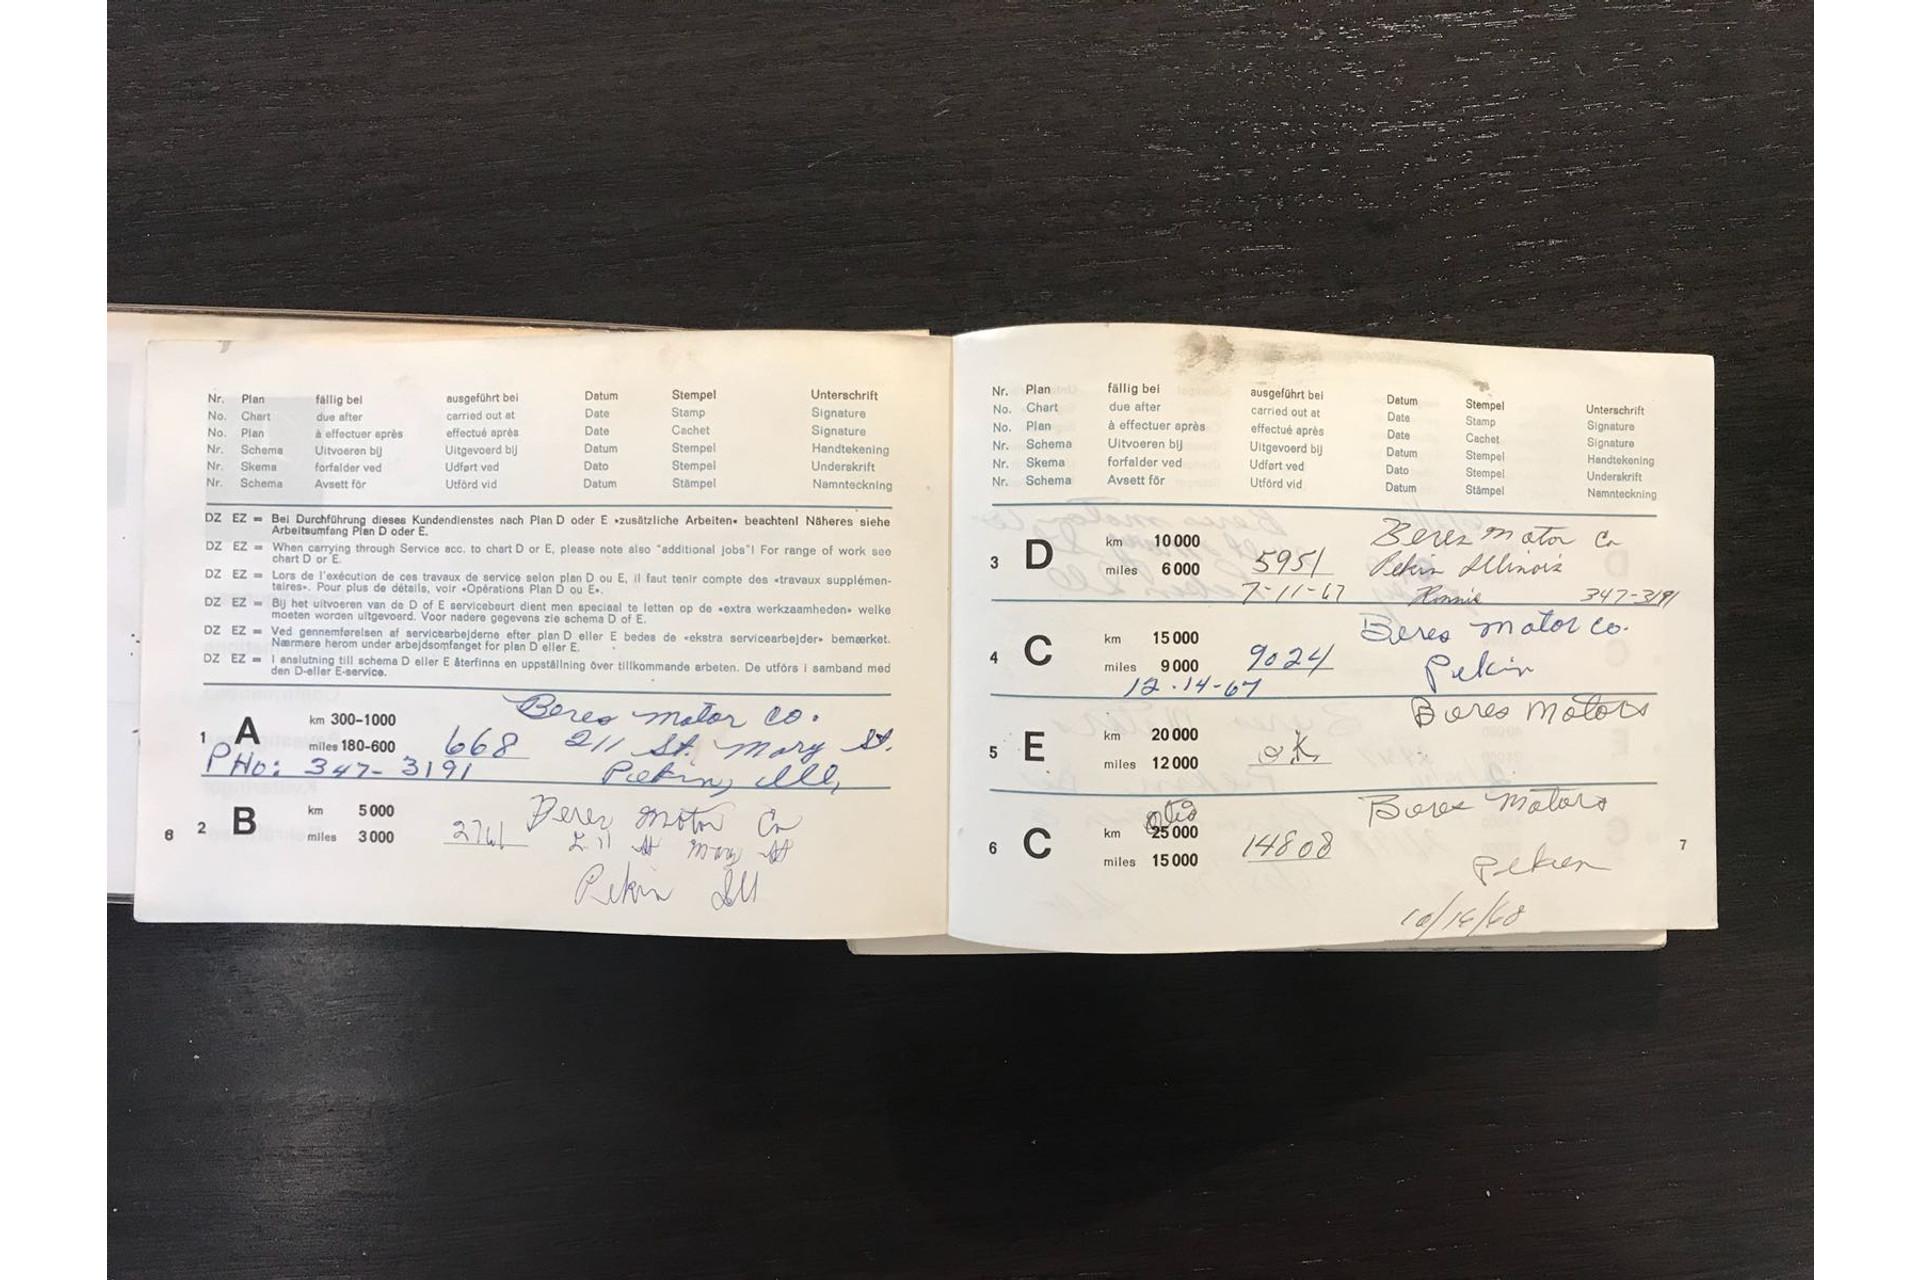 Nr. Plan fällig bei ausgeführt bei Datum Stempel Unterschrift
No. Chart due after carried out at Date Stamp Signature
No. Plan à effectuer après effectué après Date Cachet Signature
Nr. Schema Uitvoeren bij Uitgevoerd bij Datum Stempel Handtekening
Nr. Skema forfalder ved Udført ved Dato Stempel Underskrift
Nr. Schema Avsett för Utförd vid Datum Stämpel Namnteckning
DZ EZ = Bei Durchführung dieses Kundendienstes nach Plan D oder E »zusätzliche Arbeiten« beachten! Näheres siehe
Arbeitsumfang Plan D oder E.
DZ EZ = When carrying through Service acc. to chart D or E, please note also "additional jobs"! For range of work see
chart D or E.
DZ EZ = Lors de l'exécution de ces travaux de service selon plan D ou E, il faut tenir compte des «travaux supplémen-
taires». Pour plus de détails, voir «Opérations Plan D ou E».
DZ EZ = Bij het uitvoeren van de D of E servicebeurt dient men speciaal te letten op de «extra werkzaamheden» welke
moeten worden uitgevoerd. Voor nadere gegevens zie schema D of E.
DZ EZ = Ved gennemførelsen af servicearbejderne efter plan D eller E bedes de «ekstra servicearbejder» bemærket.
Nærmere herom under arbejdsomfanget for plan D eller E.
DZ EZ = I anslutning till schema D eller E återfinns en uppställning över tillkommande arbeten. De utförs i samband med
den D-eller E-service.
Beres Motor Co.
1 A km 300-1000
miles 180-600 668 211 St. Mary St.
PHo: 347-3191 Pekin, Ill,
2 B km 5 000 Beres Motor Co
miles 3 000 2761 211 St Mary St
Pekin Ill
6
Nr. Plan fällig bei ausgeführt bei Datum Stempel Unterschrift
No. Chart due after carried out at Date Stamp Signature
No. Plan à effectuer après effectué après Date Cachet Signature
Nr. Schema Uitvoeren bij Uitgevoerd bij Datum Stempel Handtekening
Nr. Skema forfalder ved Udført ved Dato Stempel Underskrift
Nr. Schema Avsett för Utförd vid Datum Stämpel Namnteckning
3 D km 10 000 Beres Motor Co
miles 6 000 5951 Pekin Illinois
7-11-67 Ronnie 347-3191
4 C km 15 000 Beres Motor Co.
miles 9 000 9024 Pekin
12-14-67
Beres Motors
5 E km 20 000
miles 12 000 ok
6 C km 25 000 Beres Motors
miles 15 000 14808 Pekin
10/16/68
7